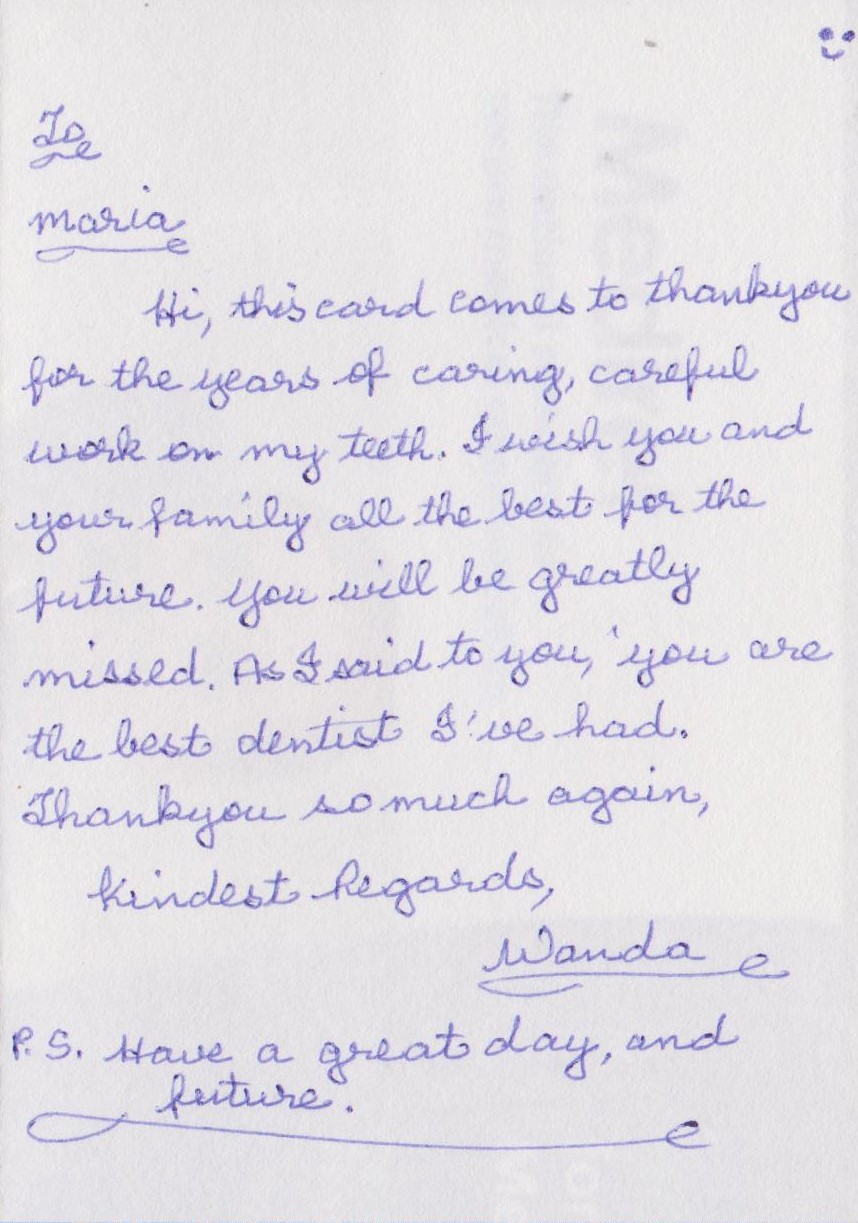 To
maria
Hi, this card comes to thankyou
for the years of caring, careful
work on my teeth. I wish you and
your family all the best for the
future. You will be greatly
missed. As I said to you, 'you are
the best dentist I've had.
Thankyou so much again,
kindest Regards,
Wanda
P.S. Have a great day, and
future.